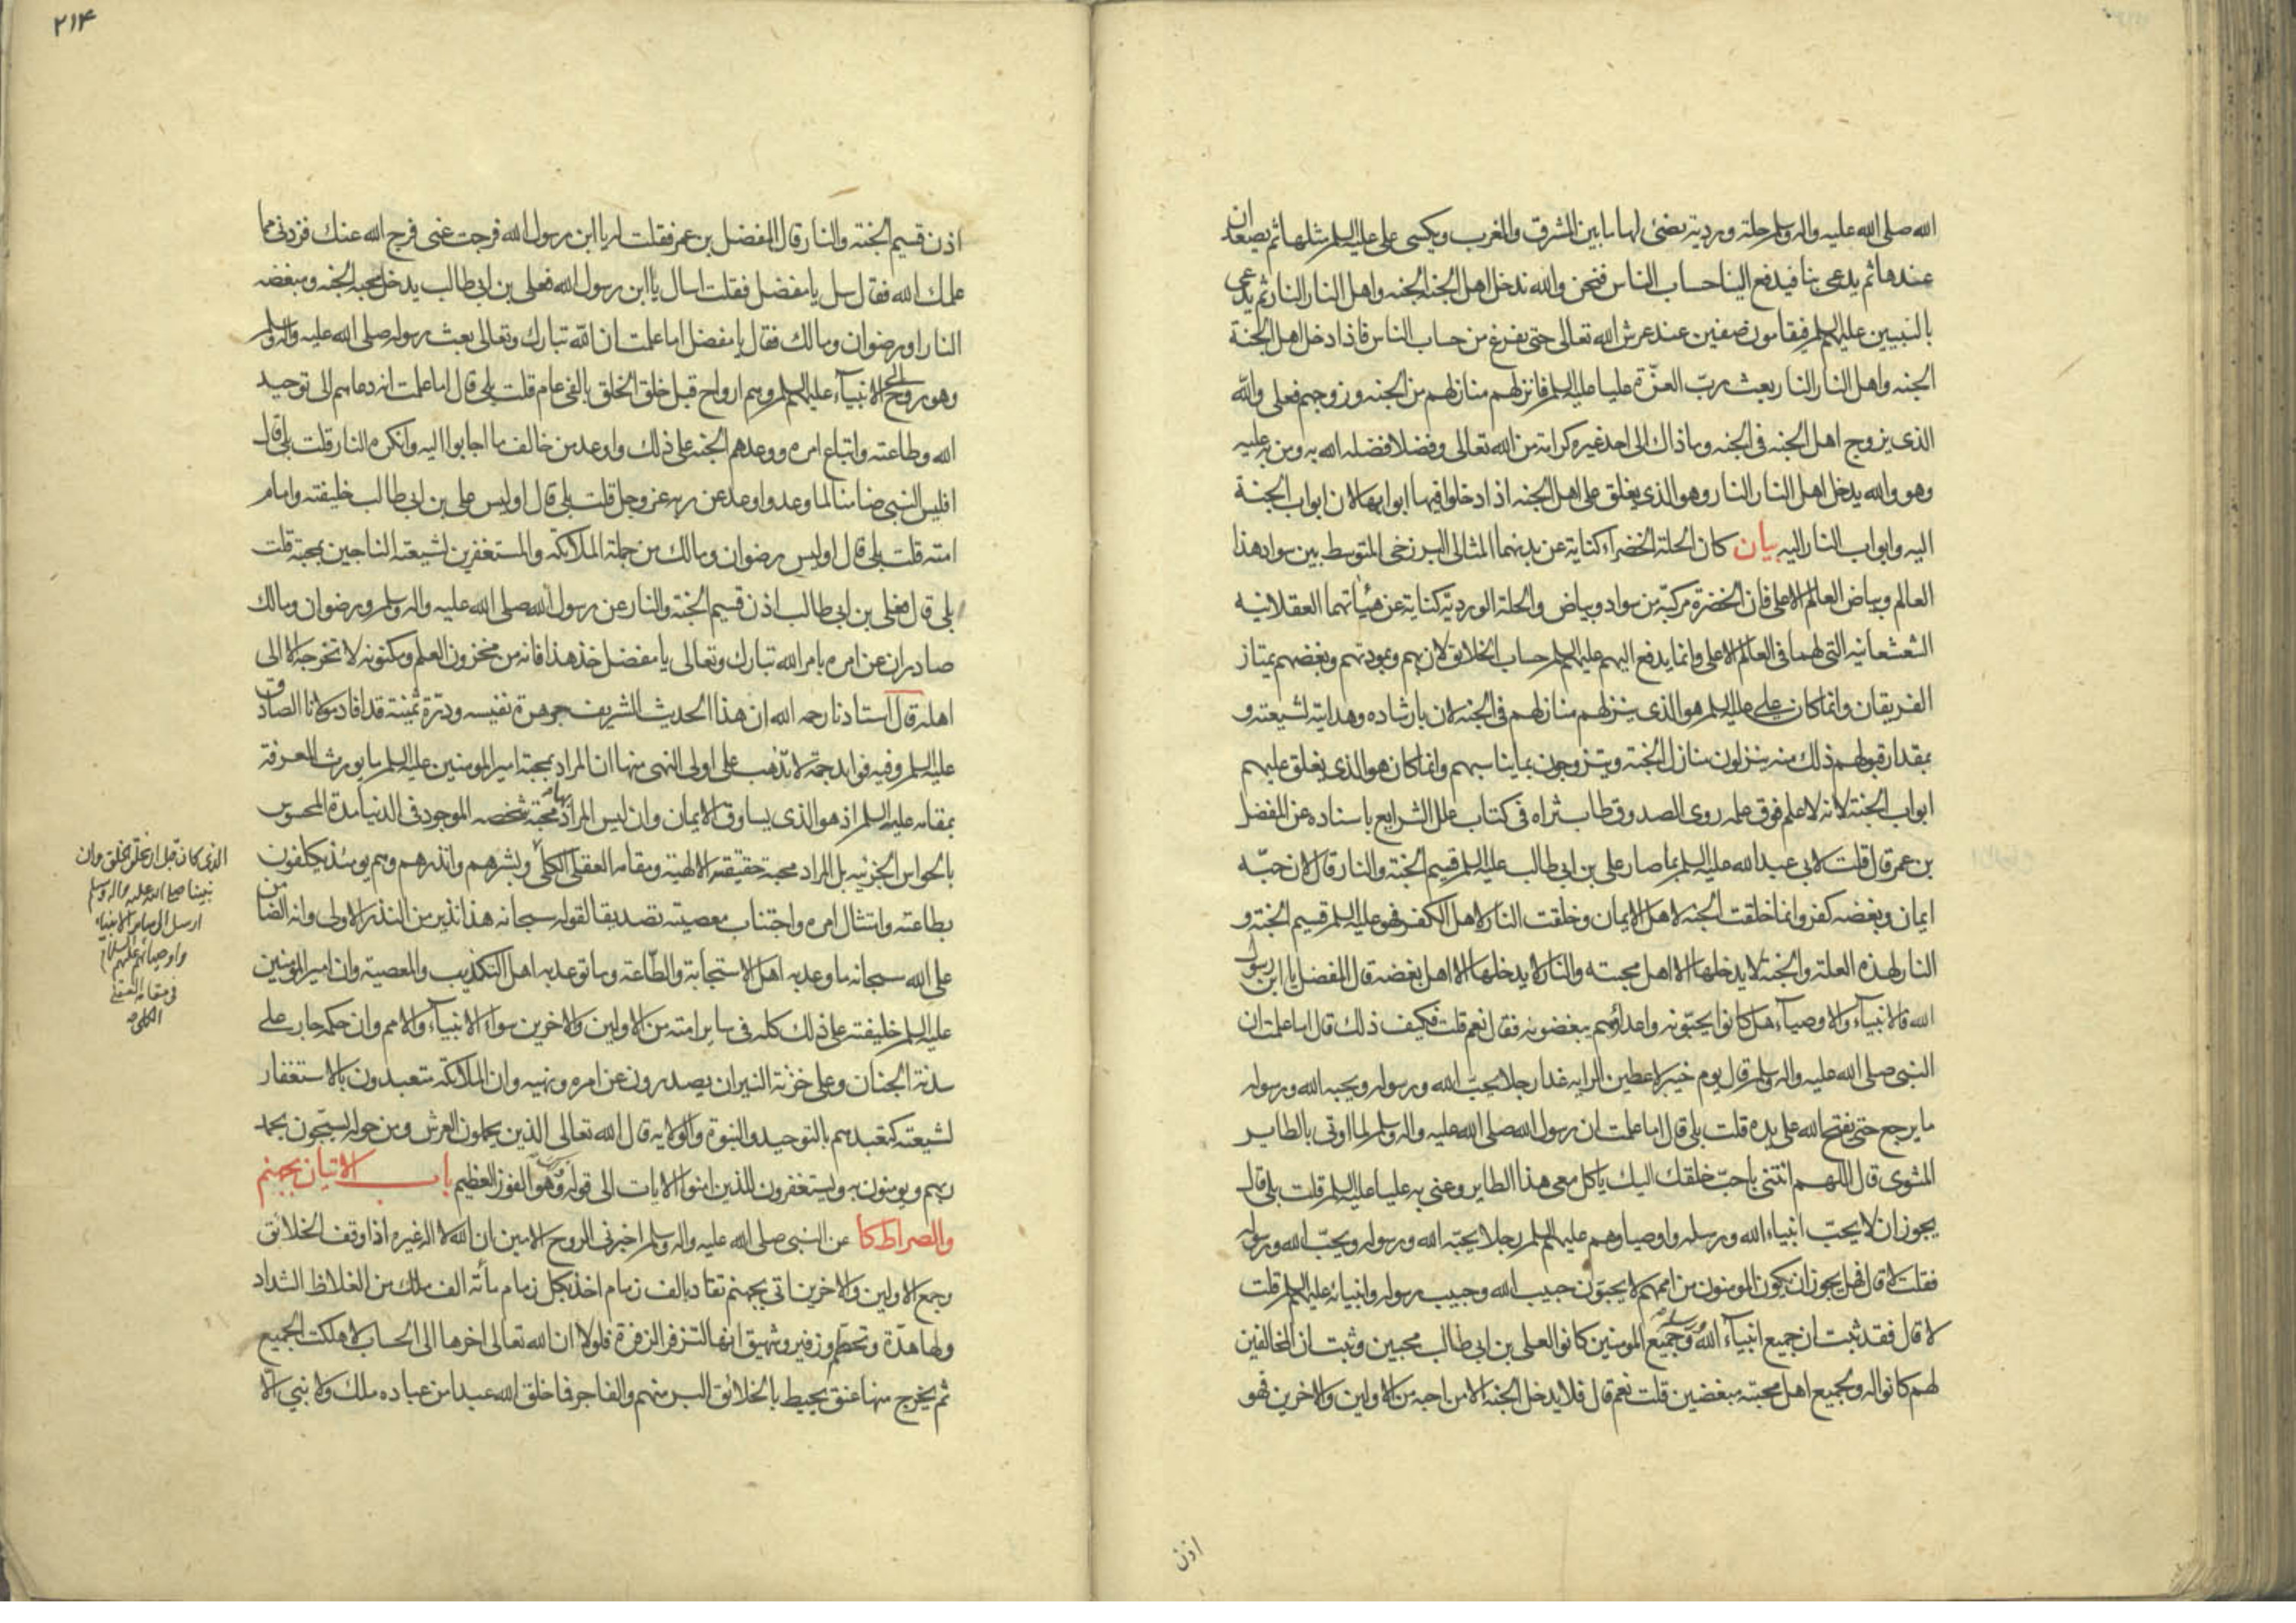 الله صلى الله عليه واله وسلم حلة وردية يضئ لها ما بين المشرق والمغرب ويكسى على عليه السلم مثلها ثم يصعدان
عندها ثم يدعى بنا فيدفع الينا حساب الناس فنحن والله ندخل اهل الجنه الجنه واهل النار النار ثم يدعى
بالنبيين عليهم السلم فيقامون صفين عند عرش الله تعالى حتى نفرغ من حساب الناس فاذا دخل اهل الجنة
الجنه واهل النار النار بعث رب العزّة عليا عليه السلم فانزلهم منازلهم من الجنه وزوجهم فعلى والله
الذى يزوج اهل الجنه فى الجنه وما ذاك الى احد غيره كرامة من الله تعالى وفضلا فضله الله به ومن به عليه
وهو والله يدخل اهل النار النار وهو الذى يغلق على اهل الجنه اذا دخلوا فيها ابوابها لان ابواب الجنة
اليه وابواب النار اليه بيان كان الحلة الخضراء كناية عن بدنهما المثالى البرزخى المتوسط بين سواد هذا
العالم وبياض العالم الاعلى فان الخضرة مركبة من سواد وبياض والحلة الوردية كناية عن هيئاتهما العقلانيه
الشعشعانيه التى لهما فى العالم الاعلى وانما يدفع اليهم عليهم السلم حساب الخلائق لان بهم وبمودتهم وبغضهم يمتاز
الفريقان وانما كان على عليه السلم هو الذى ينزلهم منازلهم فى الجنه لان بارشاده وهدايته لشيعته و
بمقدار قبولهم ذلك منه ينزلون منازل الجنة ويتزوجون بما يناسبهم وانما كان هو الذى يغلق عليهم
ابواب الجنة لانه لا علم فوق علمه روى الصدوق طاب ثراه فى كتاب علل الشرايع باسناده عن المفضل
بن عمر قال قلت لابى عبد الله عليه السلم بما صار على بن ابى طالب عليه السلم قسيم الجنة والنار قال لان حبّه
ايمان وبغضه كفر وانما خلقت الجنه لاهل الايمان وخلقت النار لاهل الكفر فهو عليه السلم قسيم الجنة و
النار لهذه العلة والجنة لا يدخلها الا اهل محبته والنار لا يدخلها الا اهل بغضه قال المفضل يا ابن رسول
الله فالانبياء والاوصياء هل كانوا يحبّونه واعداؤهم يبغضونه فقال نعم قلت فكيف ذلك قال اما علمت ان
النبى صلى الله عليه واله وسلم قال يوم خيبر لاعطين الراية غدا رجلا يحبّ الله ورسوله ويحبه الله ورسوله
ما يرجع حتى يفتح الله على يده قلت بلى قال اما علمت ان رسول الله صلى الله عليه واله وسلم لما اوتى بالطاير
المشوى قال اللهم ائتنى باحبّ خلقك اليك ياكل معى هذا الطاير وعنى به عليا عليه السلم قلت بلى قال
يجوز ان لا يحبّ انبياء الله ورسله واوصياؤهم عليهم السلم رجلا يحبّه الله ورسوله ويحبّ الله ورسوله
فقلت لا قال فهل يجوز ان يكون المومنون من اممهم لا يحبّون حبيب الله وحبيب رسوله وانبيائه عليهم السلم قلت
لا قال فقد ثبت ان جميع انبياء الله ورسله وجميع المومنين كانوا لعلى بن ابى طالب محبين وثبت ان المخالفين
لهم كانوا له ولجميع اهل محبته مبغضين قلت نعم قال فلا يدخل الجنه الا من احبه من الاولين والاخرين فهو
اذن
٢١۴
اذن قسيم الجنة والنار قال المفضل بن عمر فقلت له يا ابن رسول الله فرجت عنى فرج الله عنك فزدنى مما
علمك الله فقال سل يا مفضل فقلت اسال يا ابن رسول الله فعلى بن ابى طالب يدخل محبه الجنه ومبغضه
النار او رضوان ومالك فقال يا مفضل اما علمت ان الله تبارك وتعالى بعث رسوله صلى الله عليه واله وسلم
وهو روح الى الانبياء عليهم السلم وهم ارواح قبل خلق الخلق بالفى عام قلت بلى قال اما علمت انه دعاهم الى توحيد
الله وطاعته واتباع امره ووعدهم الجنه على ذلك واوعد من خالف ما اجابوا اليه وانكره النار قلت بلى قال
افليس النبى ضامنا لما وعد واوعد عن ربه عز وجل قلت بلى قال اوليس على بن ابى طالب خليفته وامام
امته قلت بلى قال اوليس رضوان ومالك من جملة الملائكه والمستغفرين لشيعته الناجين بمحبته قلت
بلى قال فعلى بن ابى طالب اذن قسيم الجنة والنار عن رسول الله صلى الله عليه واله وسلم ورضوان ومالك
صادران عن امره بامر الله تبارك وتعالى يا مفضل خذ هذا فانه من مخزون العلم ومكنونه لا تخرجه الا الى
اهله قال استادنا رحمه الله ان هذا الحديث الشريف جوهرة نفيسه ودرة ثمينة قد افاد مولانا الصادق
عليه السلم وفيه فوايد جمة لا تذهب على اولى النهى منها ان المراد بمحبة امير المومنين عليه السلم ما يورث المعرفة
بمقامه عليه السلم اذ هو الذى يساوق الايمان وان ليس المراد بها محبة شخصه الموجود فى الدنيا مدة المحسوس
بالحواس الجزئيه بل المراد محبة حقيقته الالهية ومقامه العقلى الكلى وبشرهم وانذرهم وهم يومئذ يكلفون
بطاعته وامتثال امره واجتناب معصيته تصديقا لقوله سبحانه هذا نذير من النذر الاولى وانه الضامن
على الله سبحانه ما وعد به اهل الاستجابة والطّاعة وما توعد به اهل التكذيب والمعصية وان امير المومنين
عليه السلم خليفته على ذلك كله فى ساير امته من الاولين والاخرين سواء الانبياء والامم وان حكمه جار على
سدنة الجنان وعلى خزنة النيران يصدرون عن امره ونهيه وان الملائكه متعبدون بالاستغفار
لشيعته كتعبدهم بالتوحيد والنبوة والولايه قال الله تعالى الذين يحملون العرش ومن حوله يسبّحون بحمد
ربهم ويومنون به ويستغفرون للذين امنوا الايات الى قوله وهو الفوز العظيم باب الاتيان بجهنم
والصراط كا عن النبى صلى الله عليه واله وسلم اخبرنى الروح الامين ان الله لا اله غيره اذا وقف الخلائق
وجمع الاولين والاخرين اتى بجهنم تقاد بالف زمام اخذ بكل زمام مأئة الف ملك من الغلاظ الشداد
ولها هدّة وتحطم وزفير وشهيق انها لتزفر الزفرة فلولا ان الله تعالى اخرها الى الحساب لاهلكت الجميع
ثم يخرج منها عنق يحيط بالخلائق البر منهم والفاجر فما خلق الله عبدا من عباده ملك ولا نبي الا
الذى كان قبل ان يخلق الخلق وان
نبينا صلى الله عليه واله وسلم
ارسل الى ساير الانبياء
واوصيائهم عليهم السلام
فى مقامه العقلى
الكلى